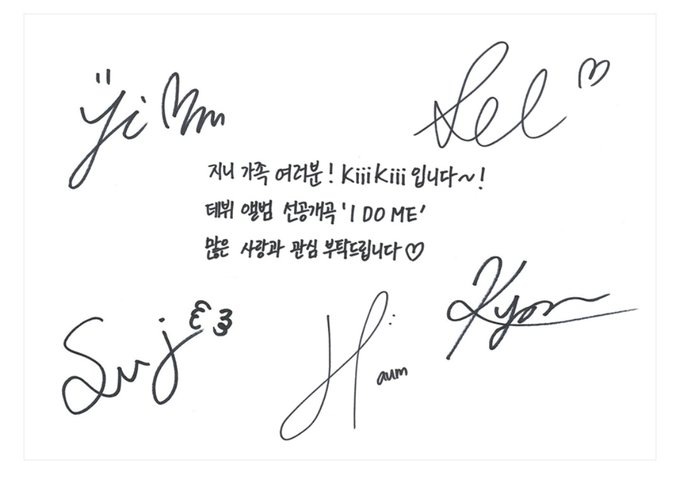 Sul
지니 가족 여러분! KiiiKiii 입니다~!
데뷔 앨범 선공개곡 'I DO ME'
많은 사랑과 관심 부탁드립니다♡
Suj
Haum
Kyon